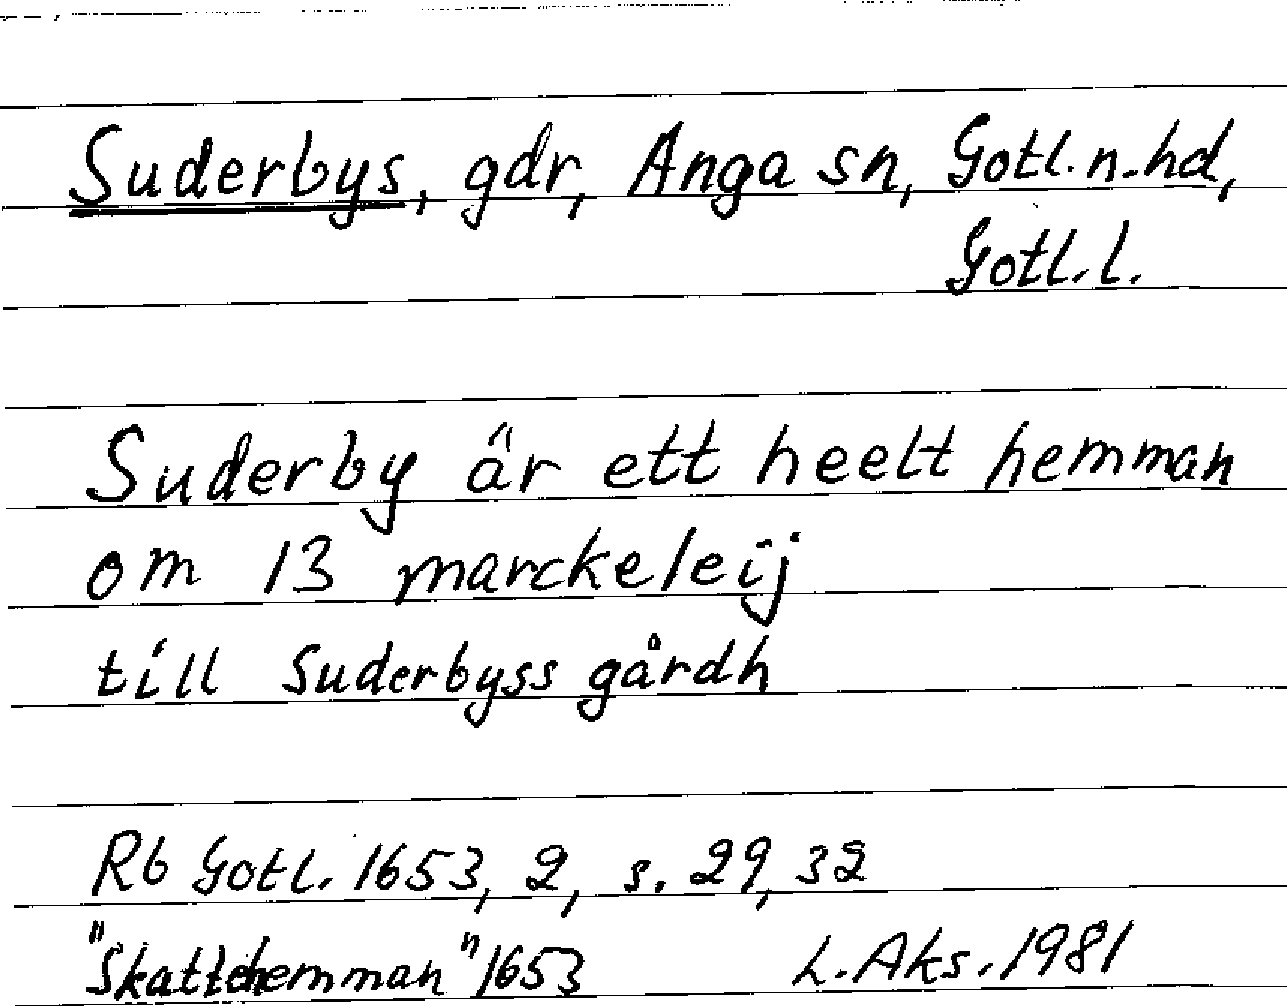 Suderbys, gdr, Anga sn, Gotl. n. hd,
Gotl. l.
Suderby är ett heelt hemman
om 13 marckeleij
till Suderbyss gårdh
Rb Gotl. 1653, 2, s. 29, 32
"Skattehemman" 1653 L. Aks. 1981